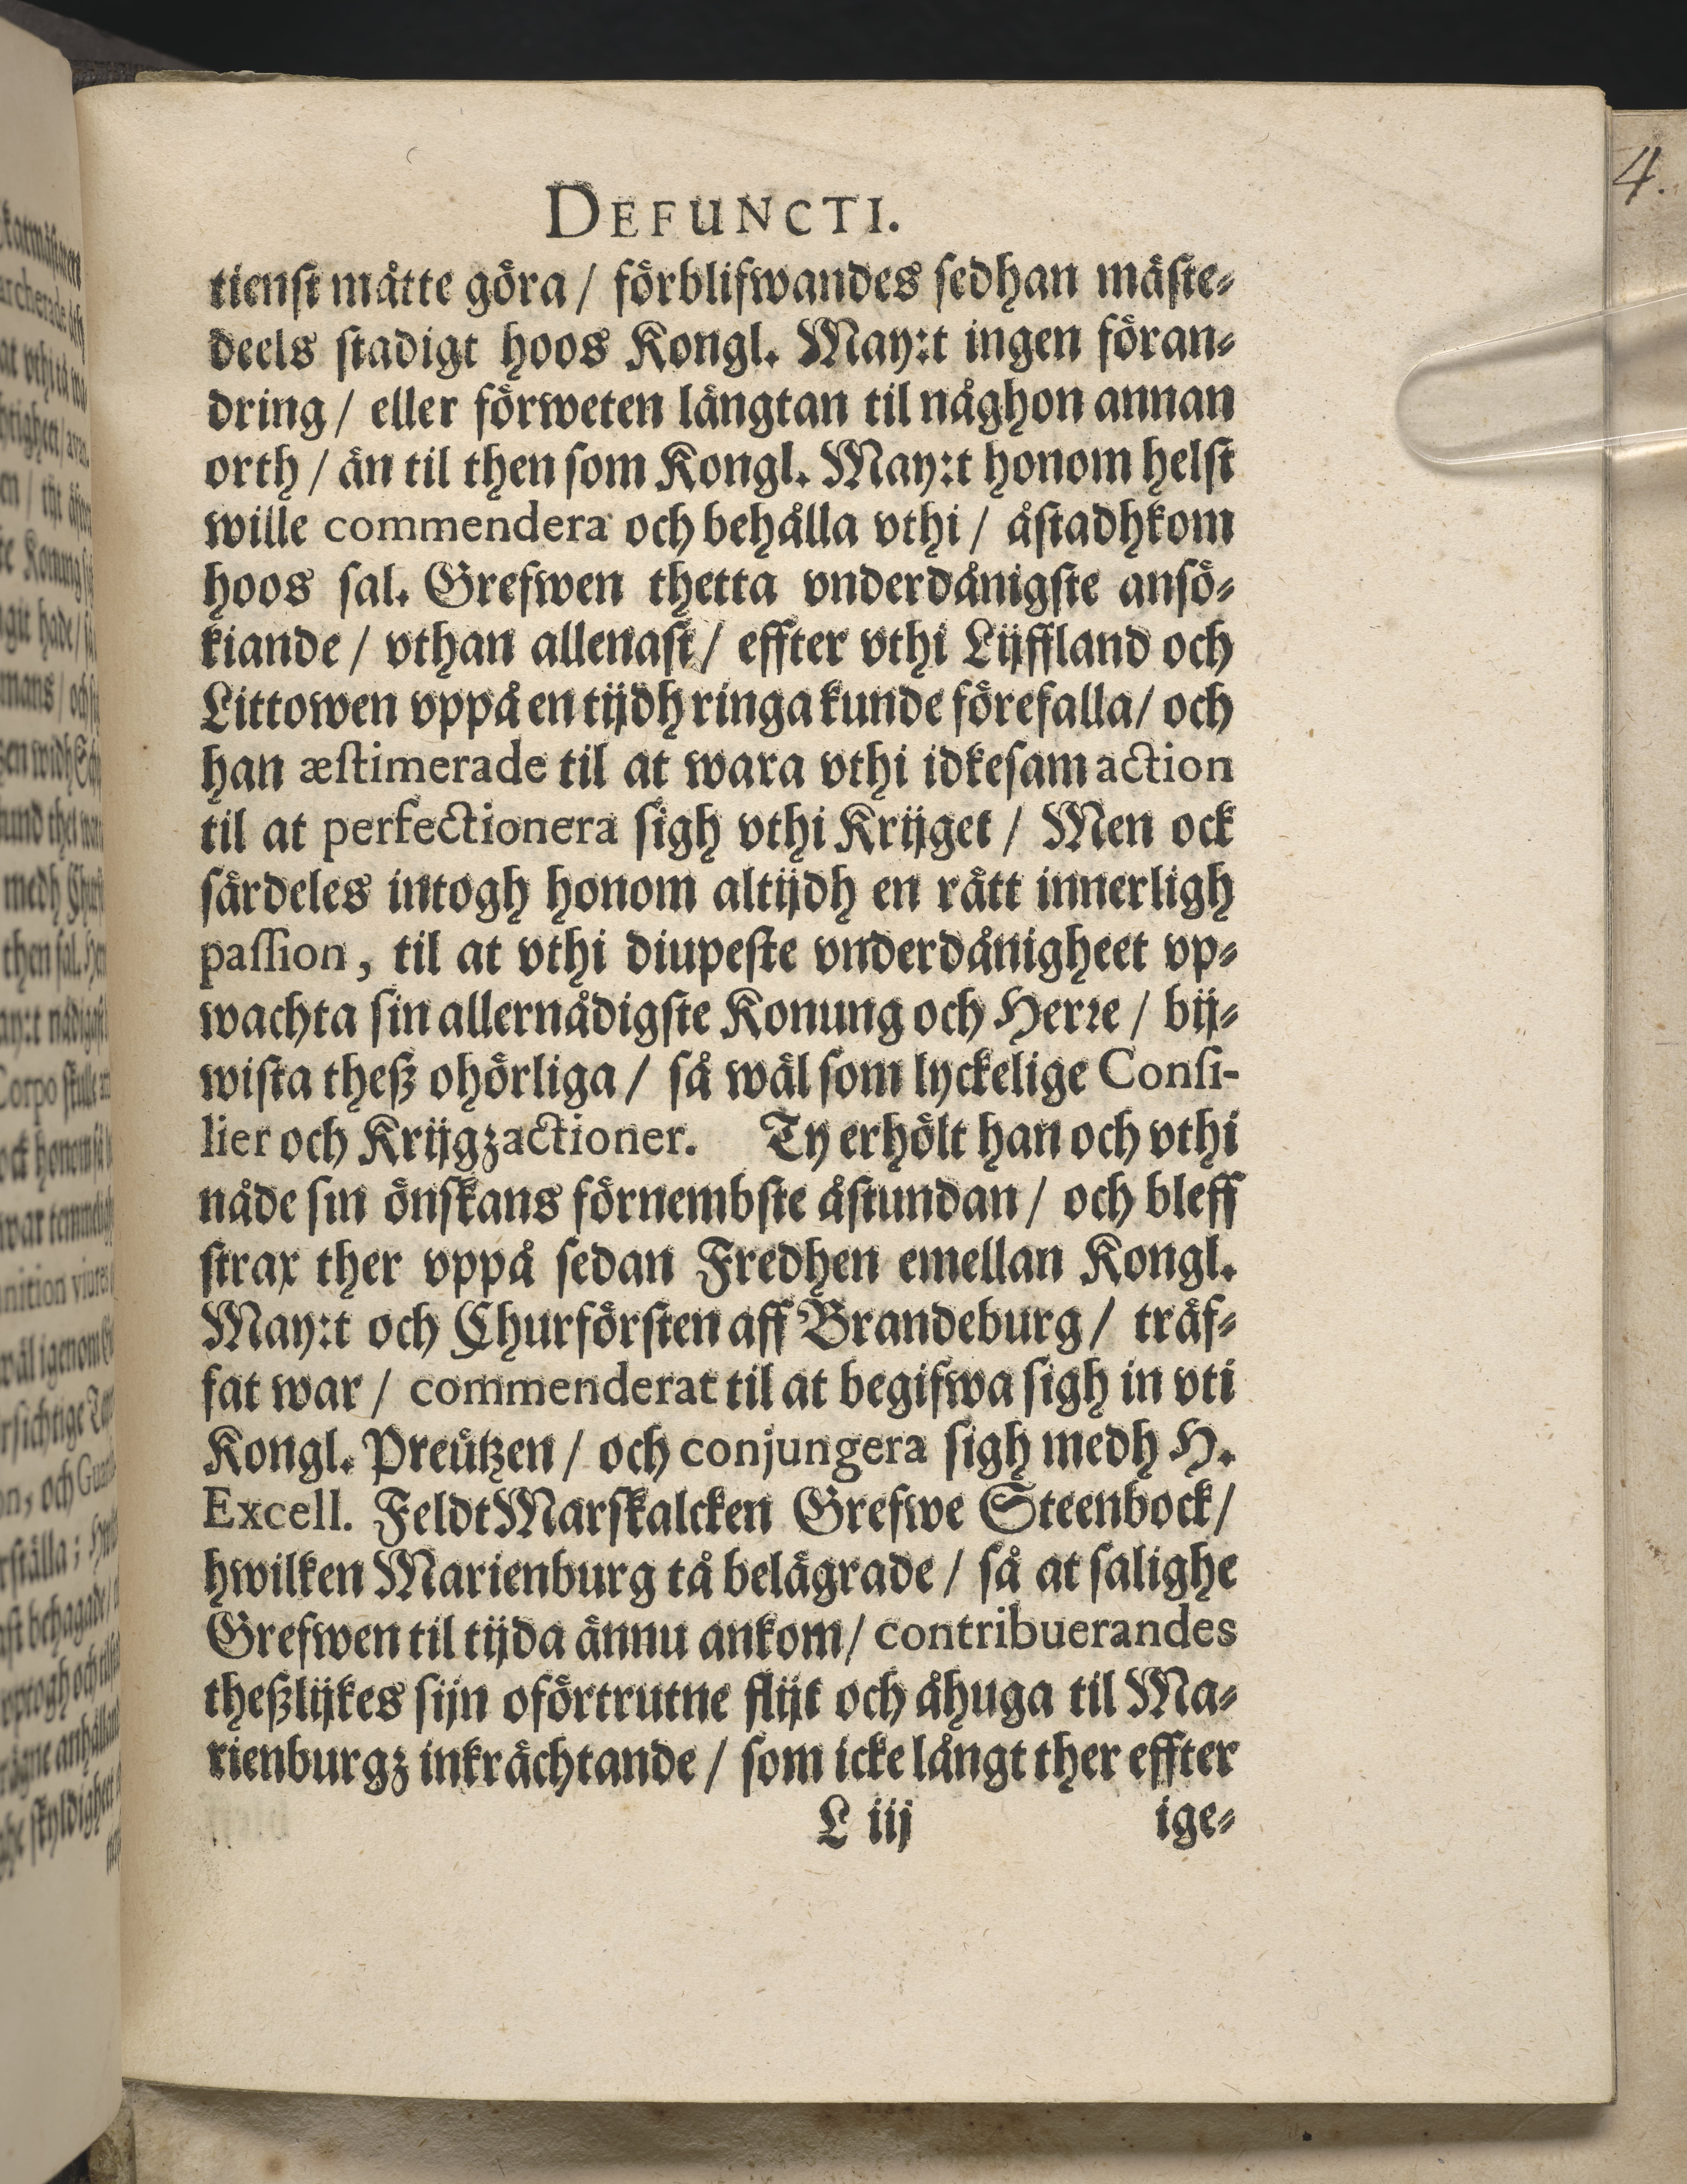 4.
DEFUNCTI.
tienst måtte göra / förblifwandes sedhan mäste⸗
deels stadigt hoos Kongl. May:t ingen föran⸗
dring / eller förweten längtan til någhon annan
orth / än til then som Kongl. May:t honom helst
wille commendera och behålla vthi / åstadhkom
hoos sal. Grefwen thetta vnderdånigste ansö⸗
kiande / vthan allenast / effter vthi Lijffland och
Littowen vppå en tijdh ringa kunde förefalla / och
han æstimerade til at wara vthi idkesam action
til at perfectionera sigh vthi Krijget / Men ock
särdeles intogh honom altijdh en rätt innerligh
passion, til at vthi diupeste vnderdånigheet vp⸗
wachta sin allernådigste Konung och Herre / bij⸗
wista theß ohörliga / så wäl som lyckelige Consi-
lier och Krijgzactioner. Ty erhölt han och vthi
nåde sin önskans förnembste åstundan / och bleff
strax ther vppå sedan Fredhen emellan Kongl.
May:t och Churförsten aff Brandeburg / träf⸗
fat war / commenderat til at begifwa sigh in vti
Kongl. Preützen / och conjungera sigh medh H.
Excell. FeldtMarskalcken Grefwe Steenbock /
hwilken Marienburg tå belägrade / så at salighe
Grefwen til tijda ännu ankom / contribuerandes
theßlijkes sijn oförtrutne flijt och åhuga til Ma⸗
rienburgz inkrächtande / som icke långt ther effter
L iij ige⸗